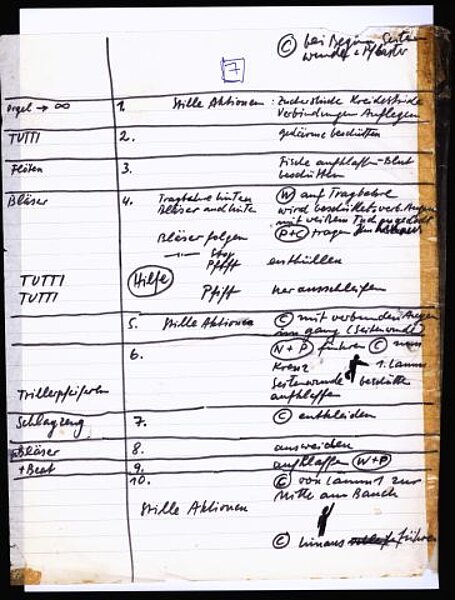 Ⓒ bei Beginn Seiten
wunde + Pflaster
7
Orgel → ∞ 1. Stille Aktionen: Zuckerstücke Kreidestriche
Verbindungen Auflegen
TUTTI 2. gedärme beschütten
Flöten 3. Fische aufklaffen - Blut
beschütten
Bläser 4. Tragbahre hinten Ⓦ auf Tragbahre
Bläser auch hinten wird beschüttet verb. Augen
mit weißem Tuch zugedeckt
Bläser folgen (P+C) tragen
Stop
Pfiff enthüllen
TUTTI Hilfe
TUTTI Pfiff herausschleifen
5. Stille Aktionen Ⓒ mit verbunden Augen
im gang (Seitenwunde)
6. (N+P) führen Ⓒ zum
Kreuz 1. Lamm
Seitenwunde beschütten
Trillerpfeifen aufklaffen
Schlagzeug 7. Ⓒ entkleiden
Bläser 8. ausweiden
+ Beat 9. aufklaffen (W+P)
10. Ⓒ von Lamm 1 zur
Mitte am Bauch
Stille Aktionen
Ⓒ hinaus führen